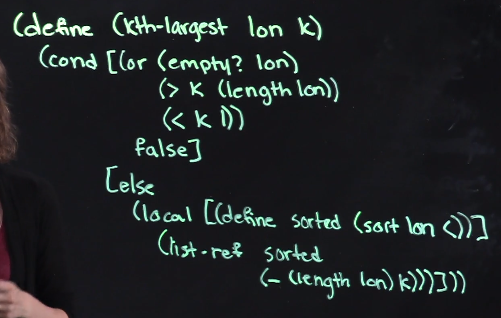 (define (kth-largest lon k)
(cond [(or (empty? lon)
(> k (length lon))
(< k 1))
false]
[else
(local [(define sorted (sort lon <))]
(list-ref sorted
(- (length lon) k)))]))